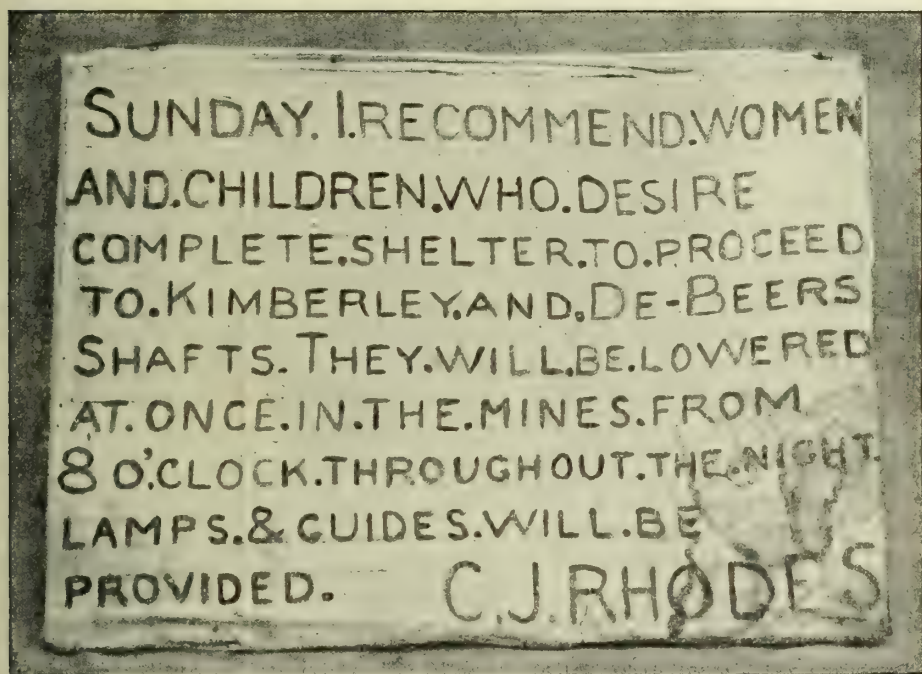 SUNDAY. I.RECOMMEND.WOMEN
AND.CHILDREN.WHO.DESIRE
COMPLETE.SHELTER.TO.PROCEED
TO.KIMBERLEY.AND.DE-BEERS
SHAFTS. THEY.WILL.BE.LOWERED
AT.ONCE.IN.THE.MINES.FROM
8 O'CLOCK.THROUGHOUT.THE.NIGHT.
LAMPS.&.GUIDES.WILL.BE
PROVIDED. C.J.RHODES